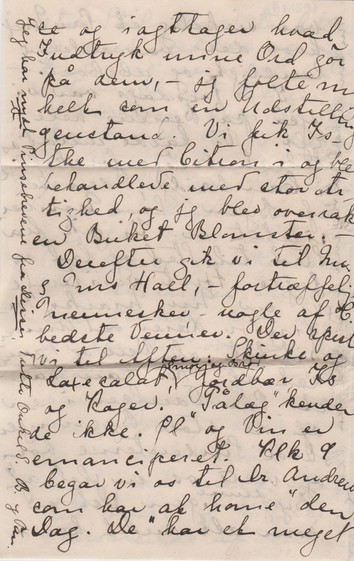 se og iagttager hvad
Indtryk mine Ord gör
på dem, - jeg følte m
helt som en Udstilling
genstand. Vi fik Is-
the med Citron i og ble
behandlede med stor ar-
tighed, og jeg blev overrak
en Buket Blomster. -
Derefter gik vi til
Hall, - fortræffeli
mennesker - nogle af H.
bedste Venner. Der spist
vi til Aften: Skinke og
Jordbær Is
og Kager. "Pålæg" kender
de ikke. Øl og Vin er
emanciperet. Klk 9
begav vi os til Dr Andrew
som har "at home" den
Dag. De har et meget
Jeg har nydt Pengene fra